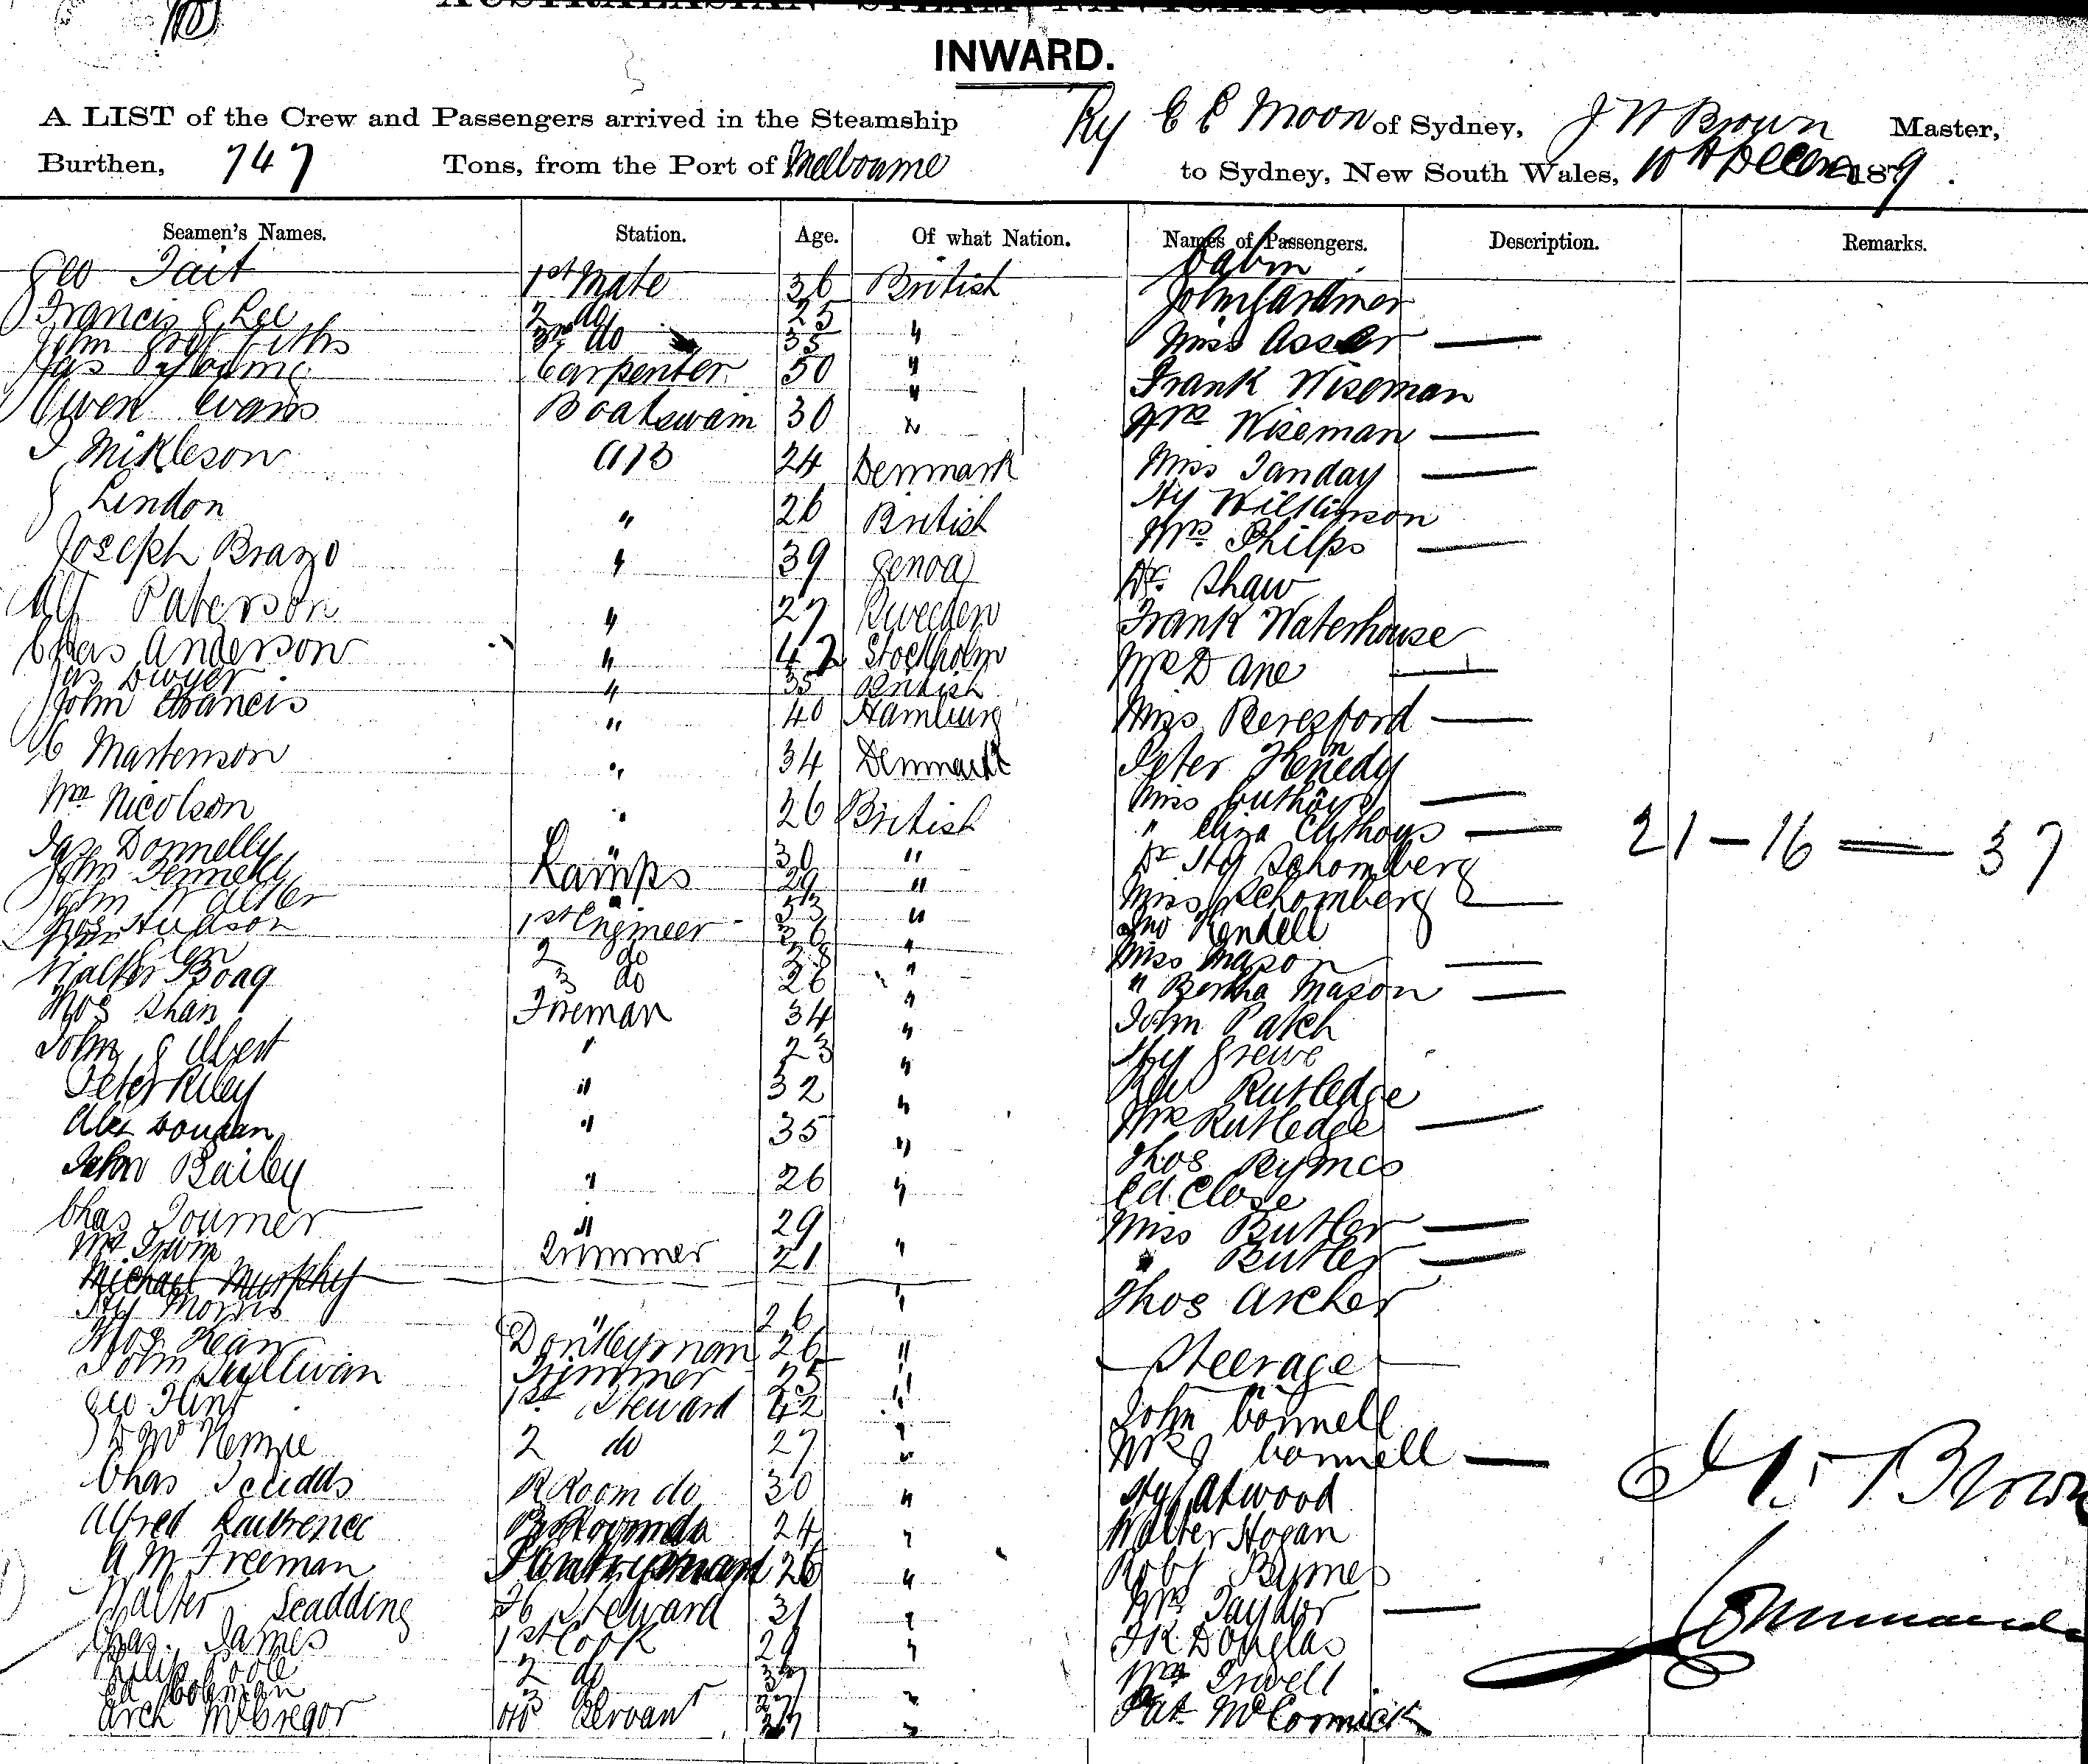 AUSTRALASIAN STEAM NAVIGATION COMPANY.
INWARD.
A LIST of the Crew and Passengers arrived in the Steamship Ry C C Moon of Sydney, J W Brown Master,
Burthen, 747 Tons, from the Port of Melbourne to Sydney, New South Wales, 10th Decem 1879.
Seamen's Names. Station. Age. Of what Nation. Names of Passengers. Description. Remarks.
Cabin
Geo Tait 1st Mate 36 British John Gardiner
Francis G Lee 2 do 25 " Miss Asser —
John Griffiths 3rd do 35 "
Jas Carpenter 50 " Frank Wiseman
Owen Evans Boatswain 30 " Mrs Wiseman —
J Mikleson AB 24 Denmark Miss Tanday —
J Lindon " 26 British Hy Wilkinson
Mrs Philps —
Joseph Brazo " 39 Genoa Dr Shaw
Alf Paterson " 27 Sweden Frank Waterhouse
Chas Anderson " 42 Stockholm Mrs Dane —
Jas Dwyer " 35 British
John Francis " 40 Hamburg Miss Beresford —
C Martenson " 34 Denmark Peter Kennedy
Wm Nicolson " 26 British Miss —
" Eliza —
Jas Donnelly " 30 " Dr Hy Schomberg
John Fennell Lamps 29 " Miss Schomberg —
John 53 "
Thos Hudson 1st Engineer 36 " Jno Kendell
Glen 2 do 28 " Miss Mason —
Walter Boag 3 do 26 " " Bertha Mason —
Thos Shan Fireman 34 " John Patch
John Gilbert " 23 " Hy Grewe
Peter Riley " 32 " Rev Rutledge
Alex " 35 " Mrs Rutledge —
John Bailey " 26 " Thos Rymes
Ed Close
Chas Tourner " 29 Miss Butler —
Wm Irwin Trimmer 21 " " Butler —
Michael Murphy
Hy Morris " 26 " Thos Archer
Thos Kean Donkeyman 26 " Steerage
John Sullivan Trimmer 25 "
Geo Flint 1st Steward 42 " John Connell
McKenzie 2 do 27 " Mrs J Connell —
Chas Scudds R Room do 30 " Hy Atwood
Alfred Lawrence 24 " Walter Hogan
A M Freeman Pantryman 26 " Robt Byrnes
Walter Scadding Steward 31 " Mrs Taylor —
Chas James 1st Cook 29 " Douglas
Philip Poole 2 do
Ed Colman 3
Arch McGregor Servant 27 " Pat McCormick
21 — 16 == 37
J W Brown
Commander